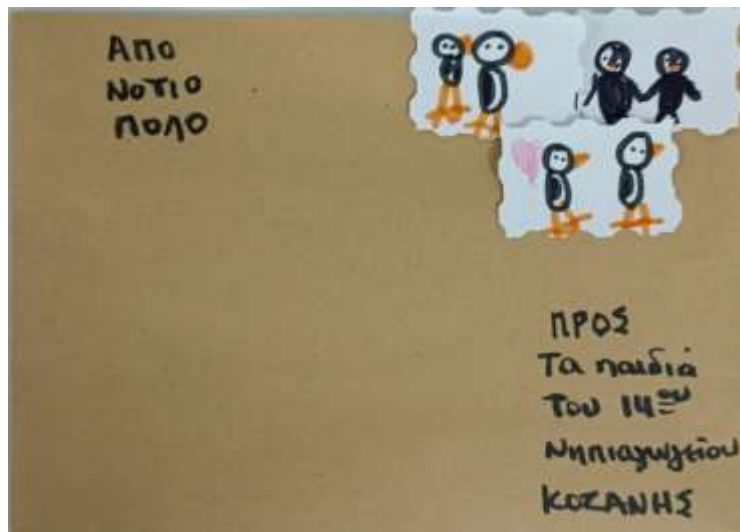 ΑΠΟ
ΝΟΤΙΟ
ΠΟΛΟ
ΠΡΟΣ
Τα παιδιά
Του 14ου
Νηπιαγωγείου
ΚΟΖΑΝΗΣ